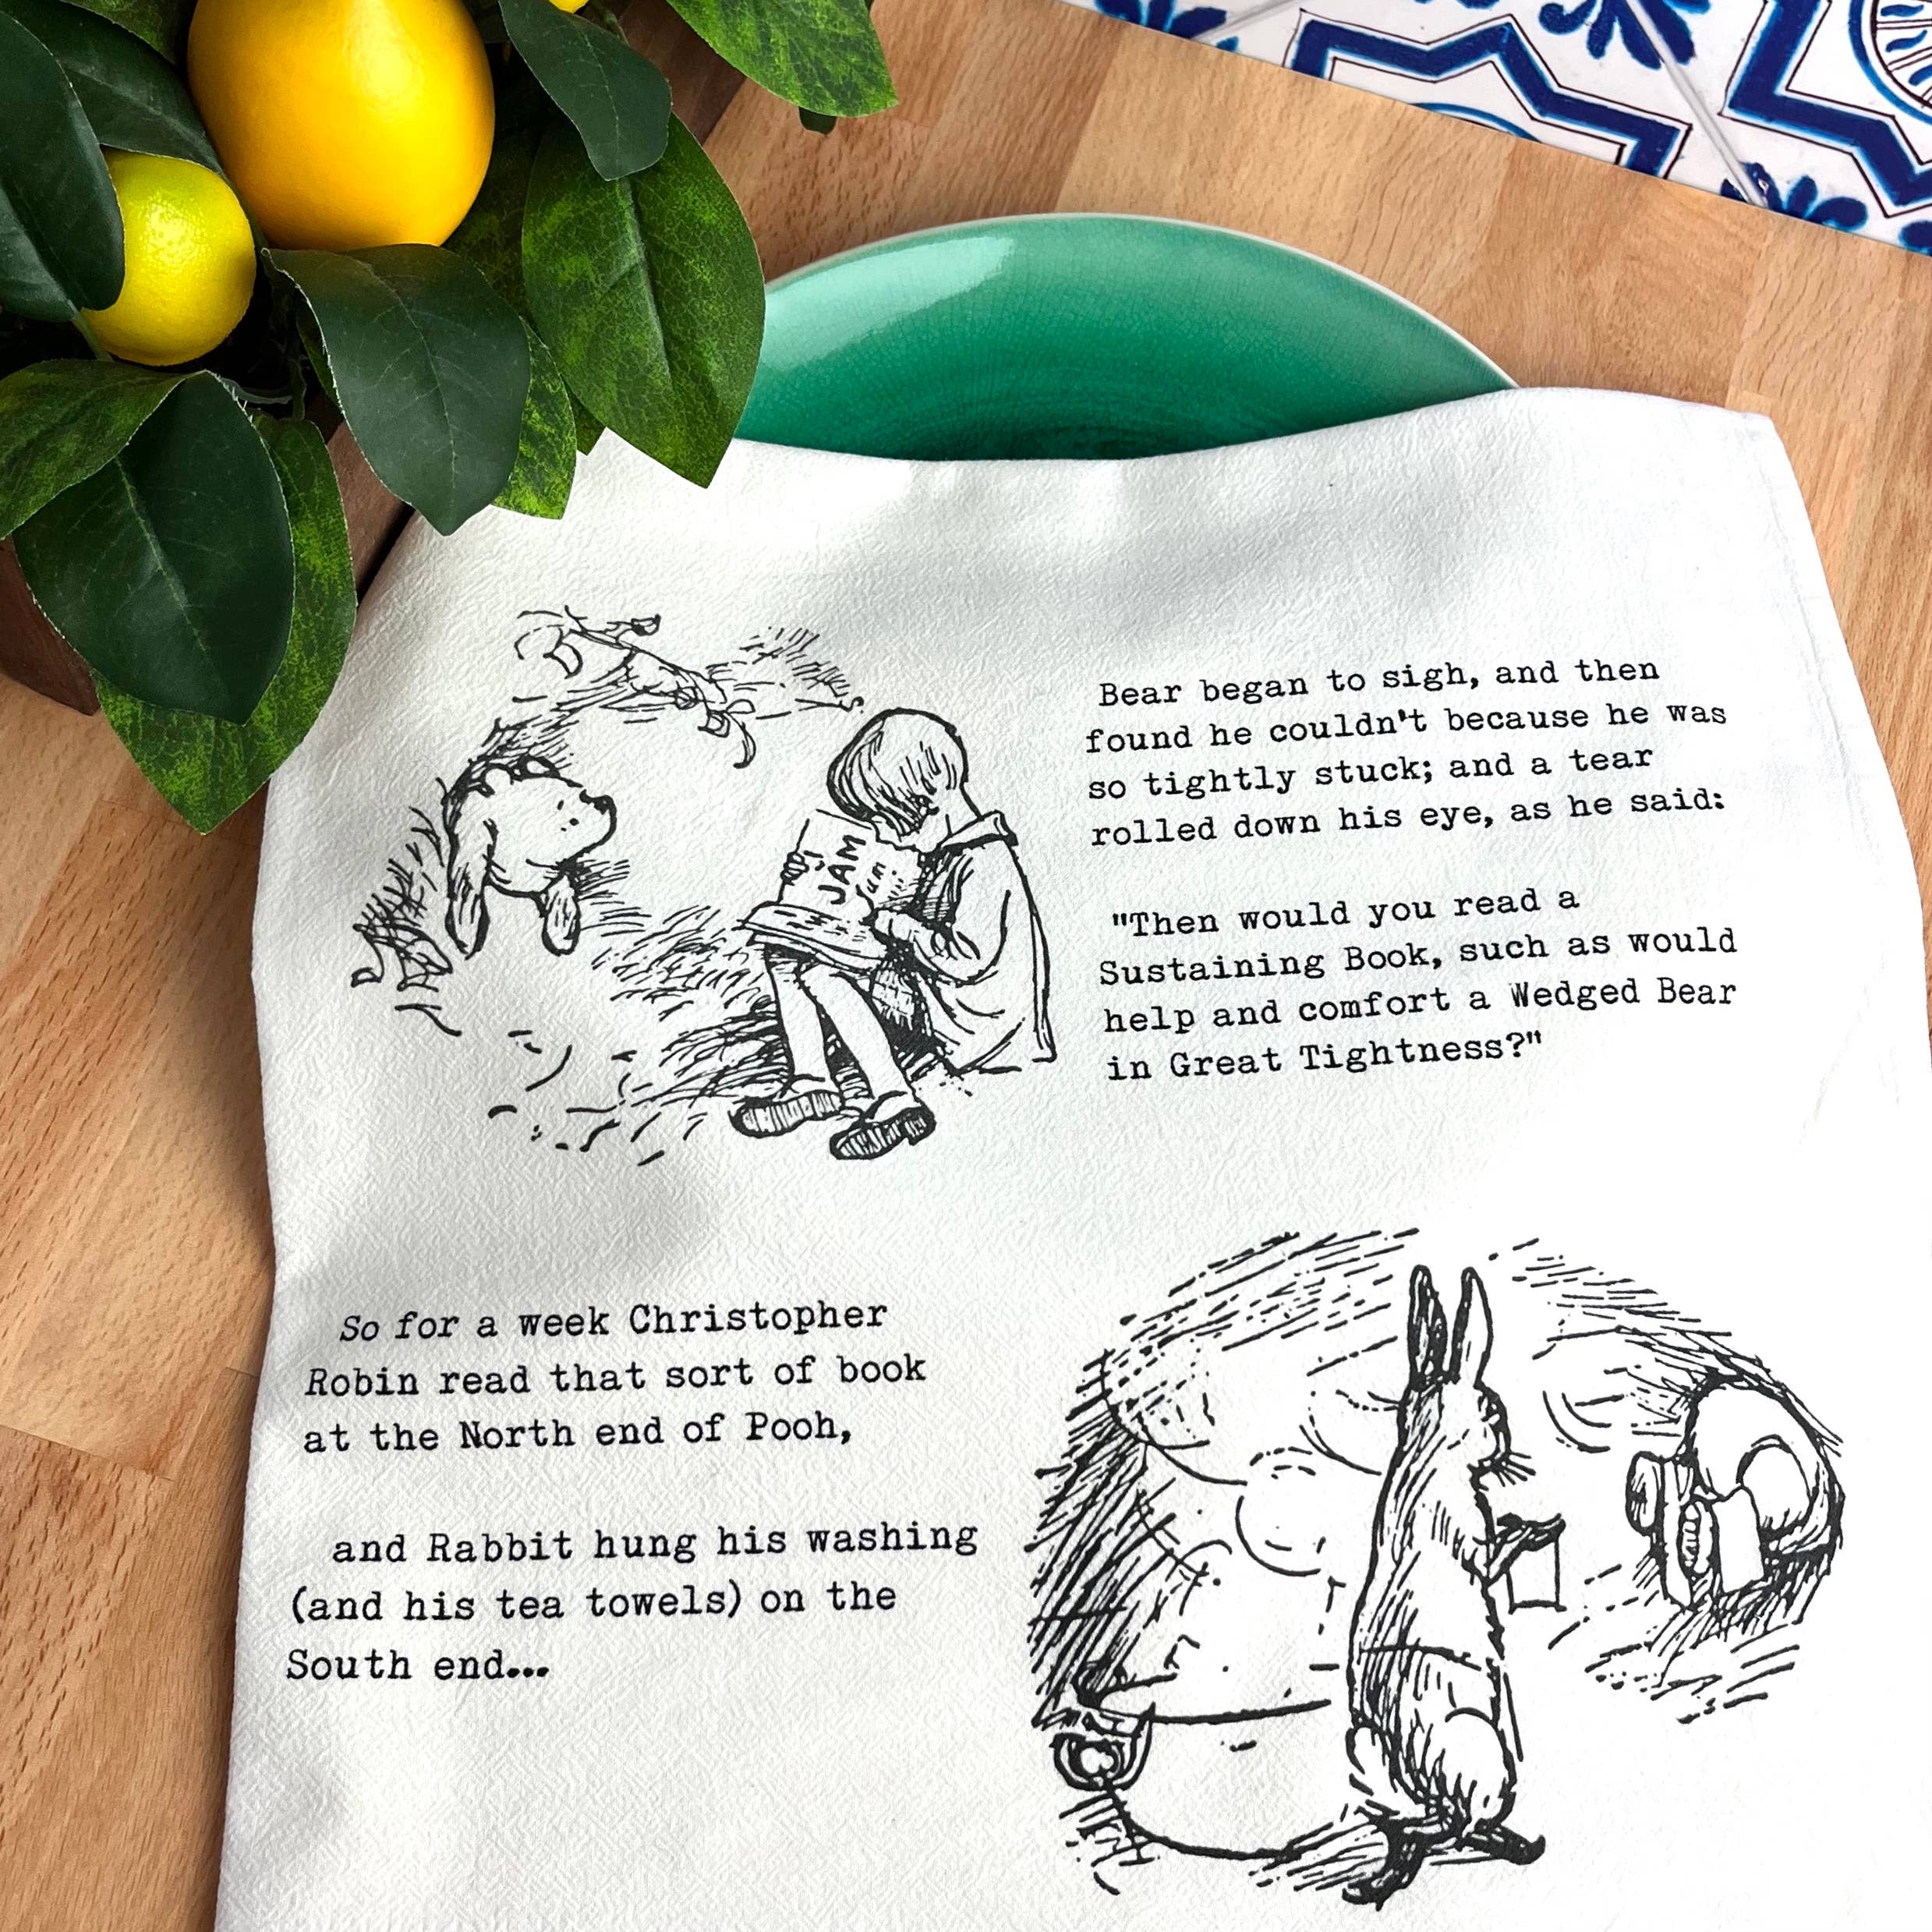 JAM
Bear began to sigh, and then
found he couldn't because he was
so tightly stuck; and a tear
rolled down his eye, as he said:
"Then would you read a
Sustaining Book, such as would
help and comfort a Wedged Bear
in Great Tightness?"
So for a week Christopher
Robin read that sort of book
at the North end of Pooh,
and Rabbit hung his washing
(and his tea towels) on the
South end...